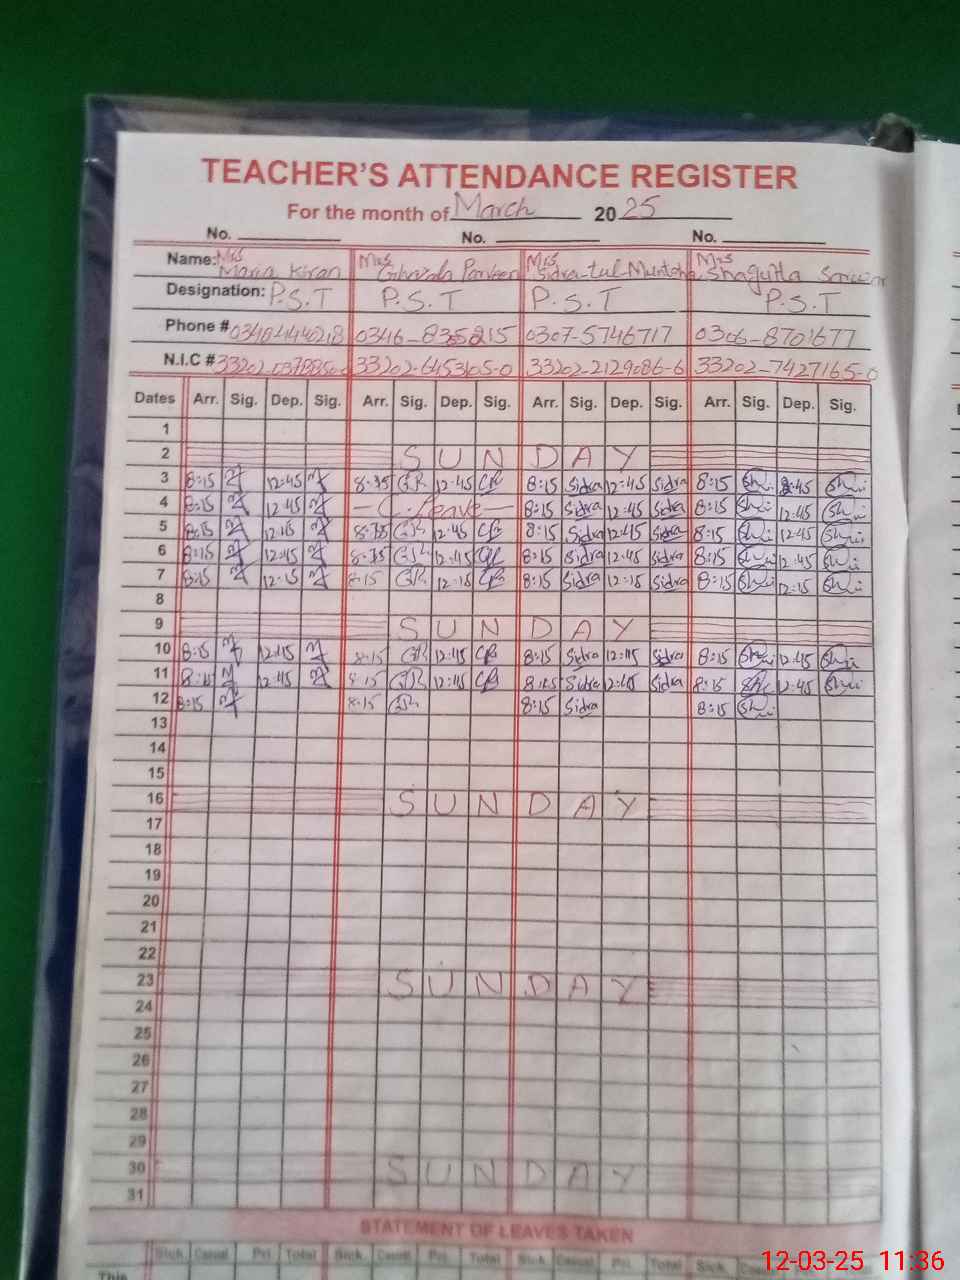 TEACHER'S ATTENDANCE REGISTER
For the month of March 2025
No. No. No.
Name: Mrs Maria Kiran Mrs Ghazala Parveen Mrs Sidra-tul-Muntaha Mrs Shagufta
Designation: P.S.T P.S.T P.S.T P.S.T
Phone # 0346-8365215 0307-5746717 0306-8701677
N.I.C # 33202-6453105-0 33202-2129086-6 33202-7427165-0
Dates Arr. Sig. Dep. Sig. Arr. Sig. Dep. Sig. Arr. Sig. Dep. Sig. Arr. Sig. Dep. Sig.
1
2 SUNDAY
3 8:15 12:45 8:35 GR 12:45 8:15 Sidra 12:45 Sidra 8:15 12:45
4 8:15 12:45 - C. leave - 8:15 Sidra 12:45 Sidra 8:15 12:45
5 8:15 8:35 GR 12:45 8:15 Sidra 12:45 Sidra 8:15 12:45
6 8:15 12:45 8:35 GR 12:45 8:15 Sidra 12:45 Sidra 8:15 12:45
7 8:15 12:15 8:15 GR 12:15 8:15 Sidra 12:15 Sidra 8:15 12:15
8
9 SUNDAY
10 8:15 12:45 8:15 GR 12:45 8:15 Sidra 12:45 Sidra 8:15 12:45
11 8:15 12:45 8:15 GR 12:45 8:15 Sidra 12:45 Sidra 8:15 12:45
12 8:15 8:15 GR 8:15 Sidra 8:15
13
14
15
16 SUNDAY
17
18
19
20
21
22
23 SUNDAY
24
25
26
27
28
29
30 SUNDAY
31
STATEMENT OF LEAVES TAKEN
Sick. Casual Pri. Total Sick. Casual Pri. Total Sick. Casual Pri. Total Sick. Casual Pri. Total
This
12-03-25 11:36